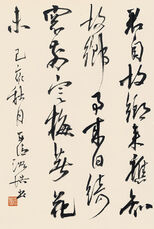 君自故鄉來應知
故鄉事來日綺
窗前寒梅著花
未
己亥秋月